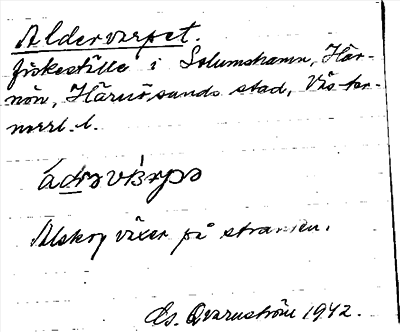 Aldervarpet.
fiskeställe i Solumshamn, Här-
nön, Härnösands stad, Väster-
norrl. l.
ádrəvárpə
Alskog växer på stranden.
Es. Qvarnström 1942.